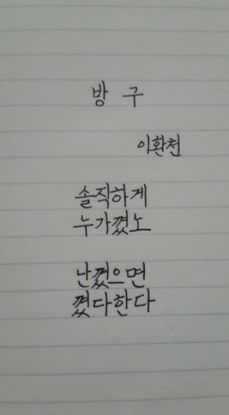 방 구
이환천
솔직하게
누가꼈노
난꼈으면
꼈다한다